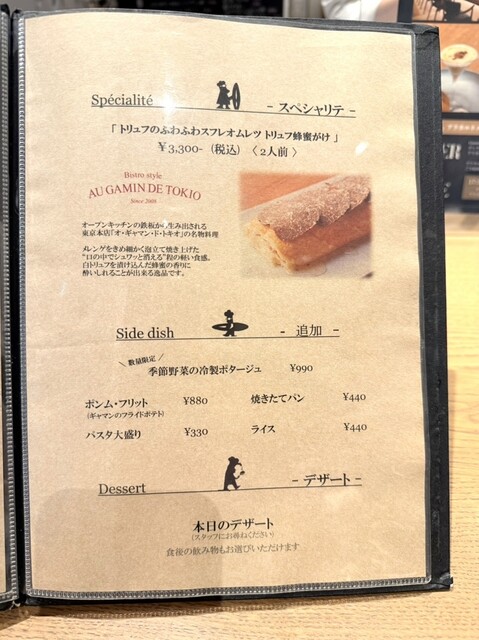 Spécialité - スペシャリテ -
「 トリュフのふわふわスフレオムレツ トリュフ蜂蜜がけ 」
￥3,300-（税込）〈 2人前 〉
Bistro style
AU GAMIN DE TOKIO
Since 2008
オープンキッチンの鉄板から生み出される
東京本店「オ・ギャマン・ド・トキオ」の名物料理
メレンゲをきめ細かく泡立て焼き上げた
“口の中でシュワッと消える”程の軽い食感。
白トリュフを漬け込んだ蜂蜜の香りに
酔いしれることが出来る逸品です。
Side dish - 追加 -
＼ 数量限定 ／
季節野菜の冷製ポタージュ ¥990
ポンム・フリット ¥880 焼きたてパン ¥440
(ギャマンのフライドポテト)
パスタ大盛り ¥330 ライス ¥440
Dessert - デザート -
本日のデザート
(スタッフにお尋ねください)
食後の飲み物もお選びいただけます